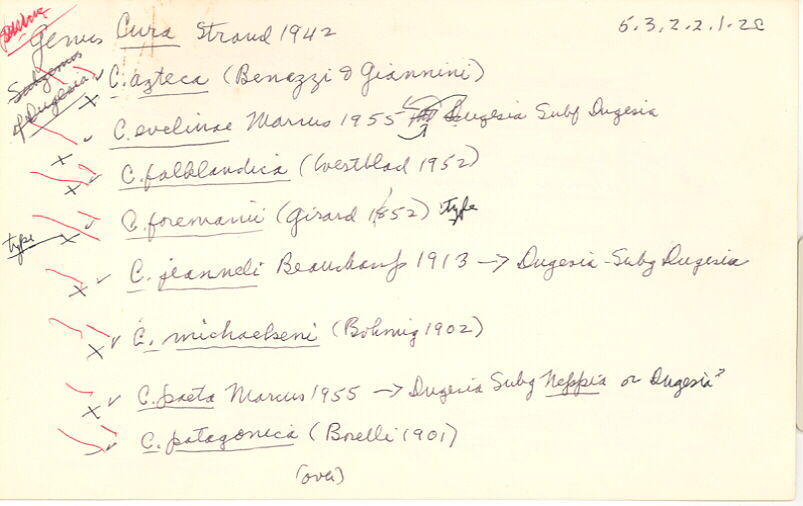 Genus Cura Strand 1942 5.3.2.2.1.2c
Subgenus of Dugesia
C. azteca (Benazzi & Giannini)
C. evelinae Marcus 1955 Dugesia Subg Dugesia
C. falklandica (Westblad 1952)
type C. foremanii (Girard 1852) type
C. jeanneli Beauchamp 1913 → Dugesia - Subg Dugesia
C. michaelseni (Böhmig 1902)
C. paeta Marcus 1955 → Dugesia Subg Neppia or Dugesia?
C. patagonica (Borelli 1901)
(over)